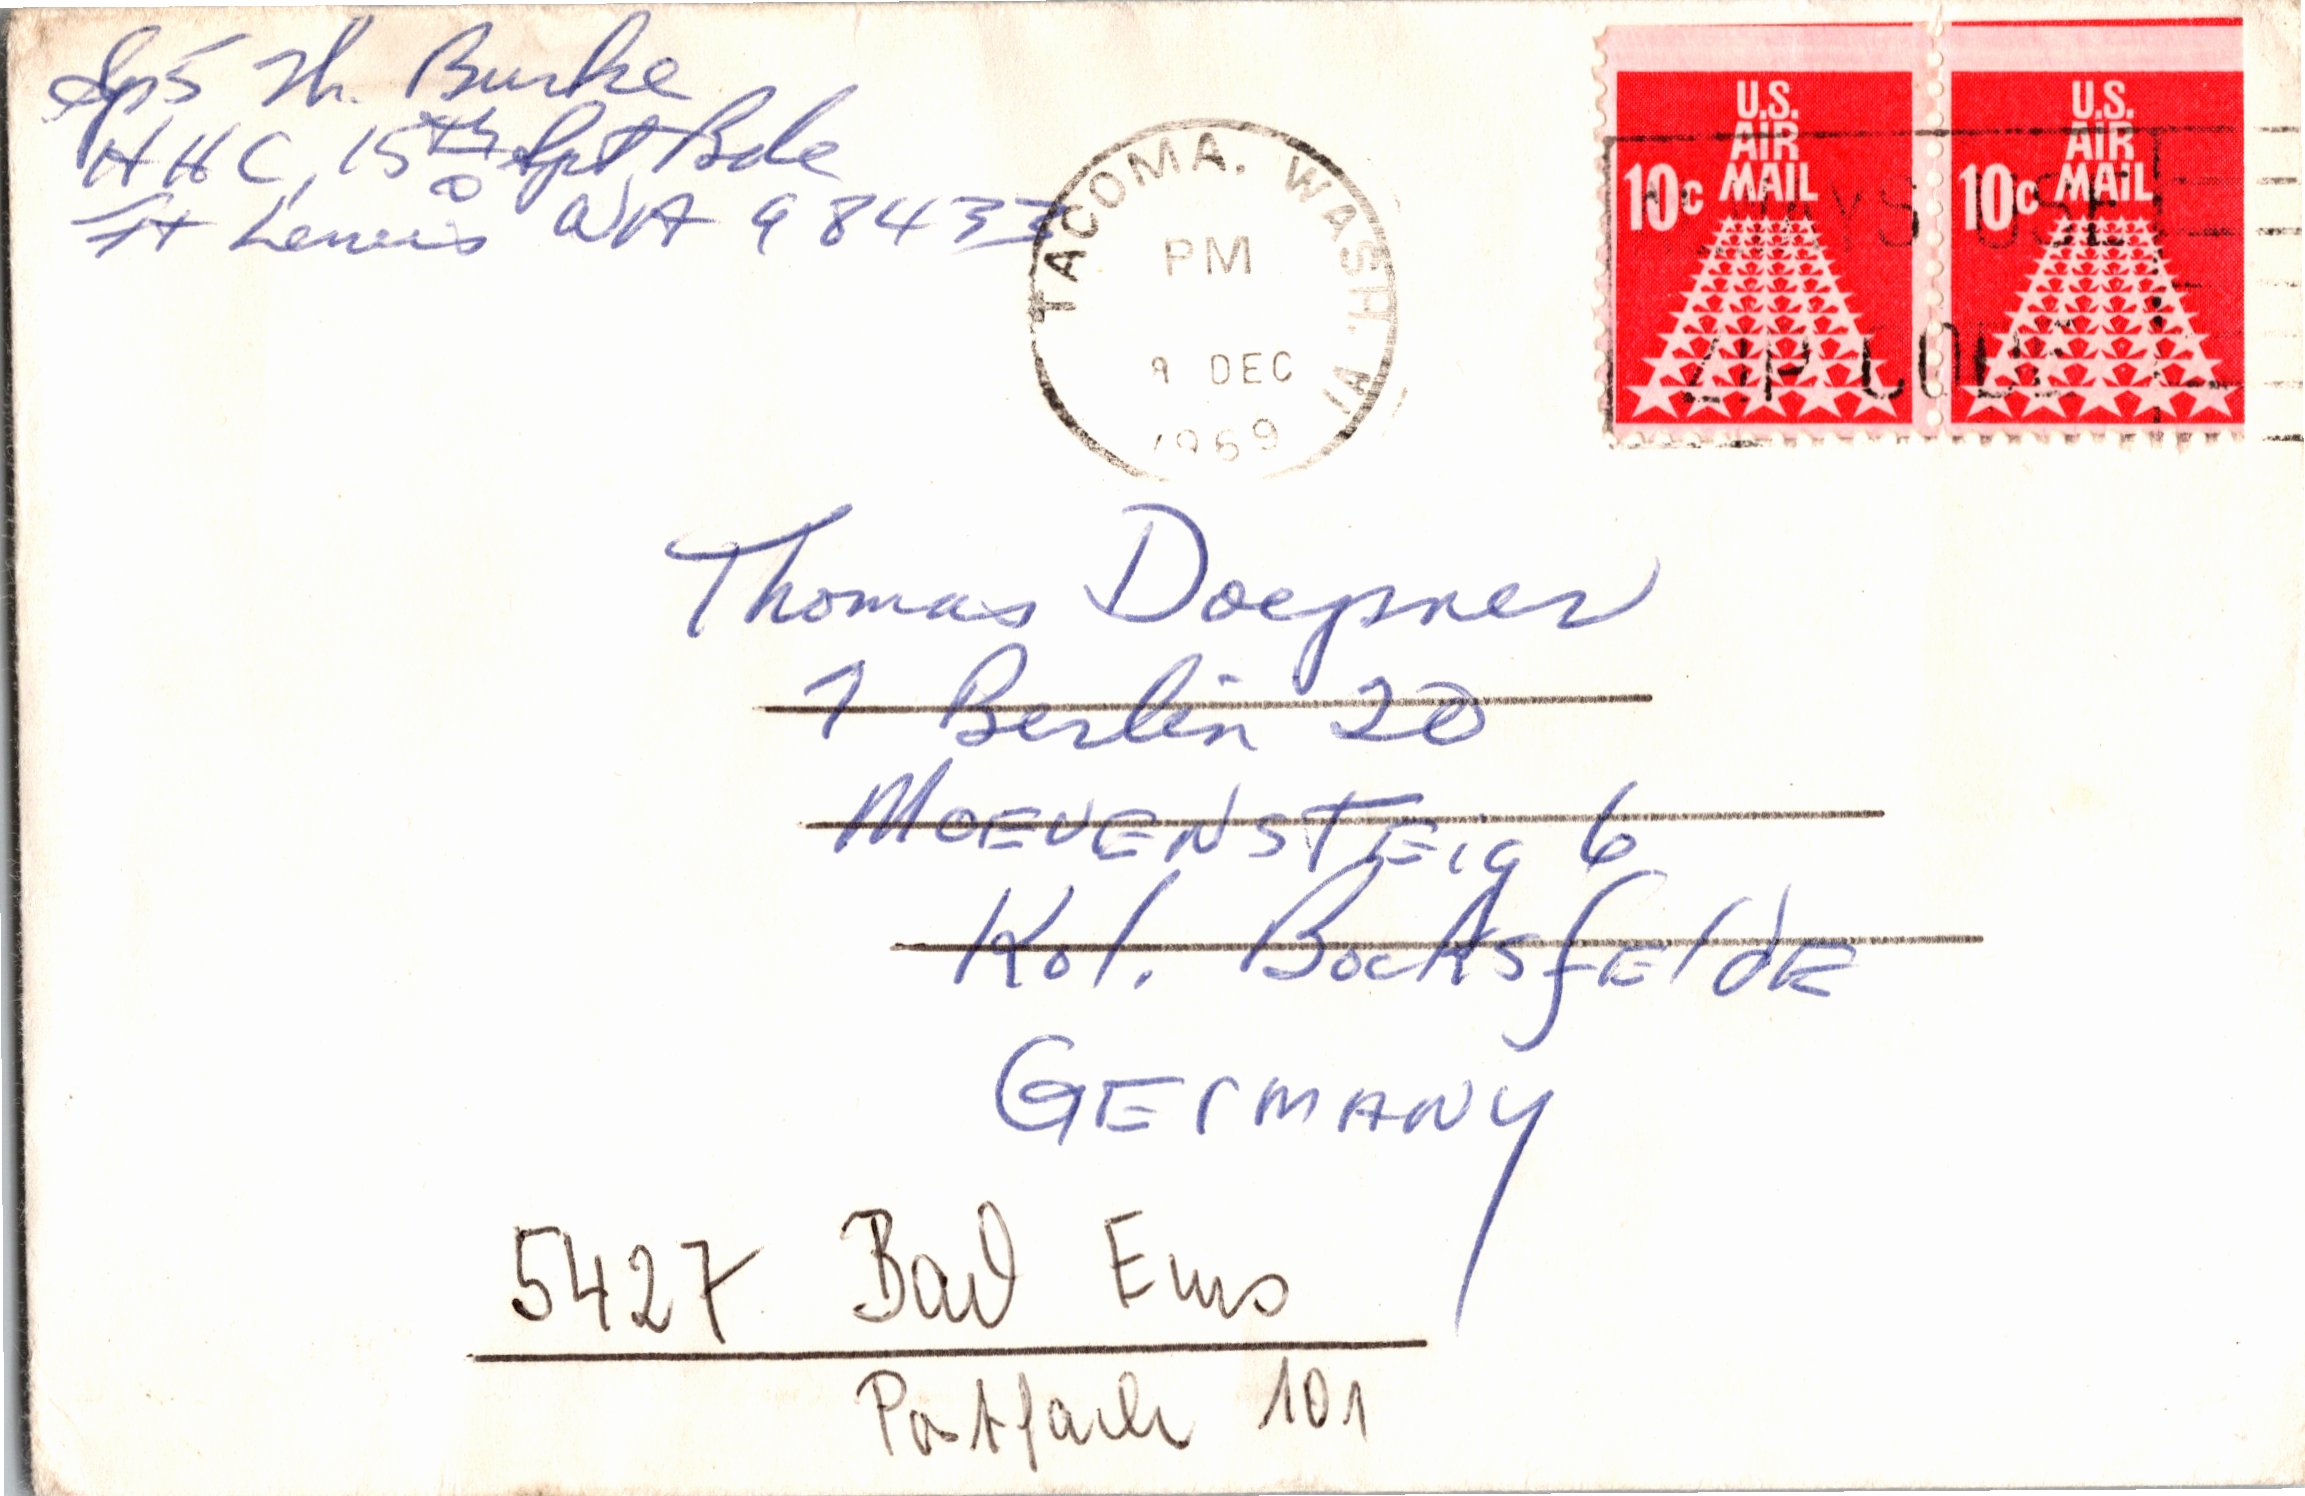 Sp5 Th. Burke
HHC, 15th Spt Bde
Ft Lewis WA 98433
TACOMA, WASH.
PM
9 DEC
1969
U.S.
AIR
MAIL
10c
U.S.
AIR
MAIL
10c
USE
ZIP CODE
Thomas Doepner
1 Berlin 20
MOEVENSTEIG 6
Kol. BocksfeldE
GErMANY
5427 Bad Ems
Postfach 101